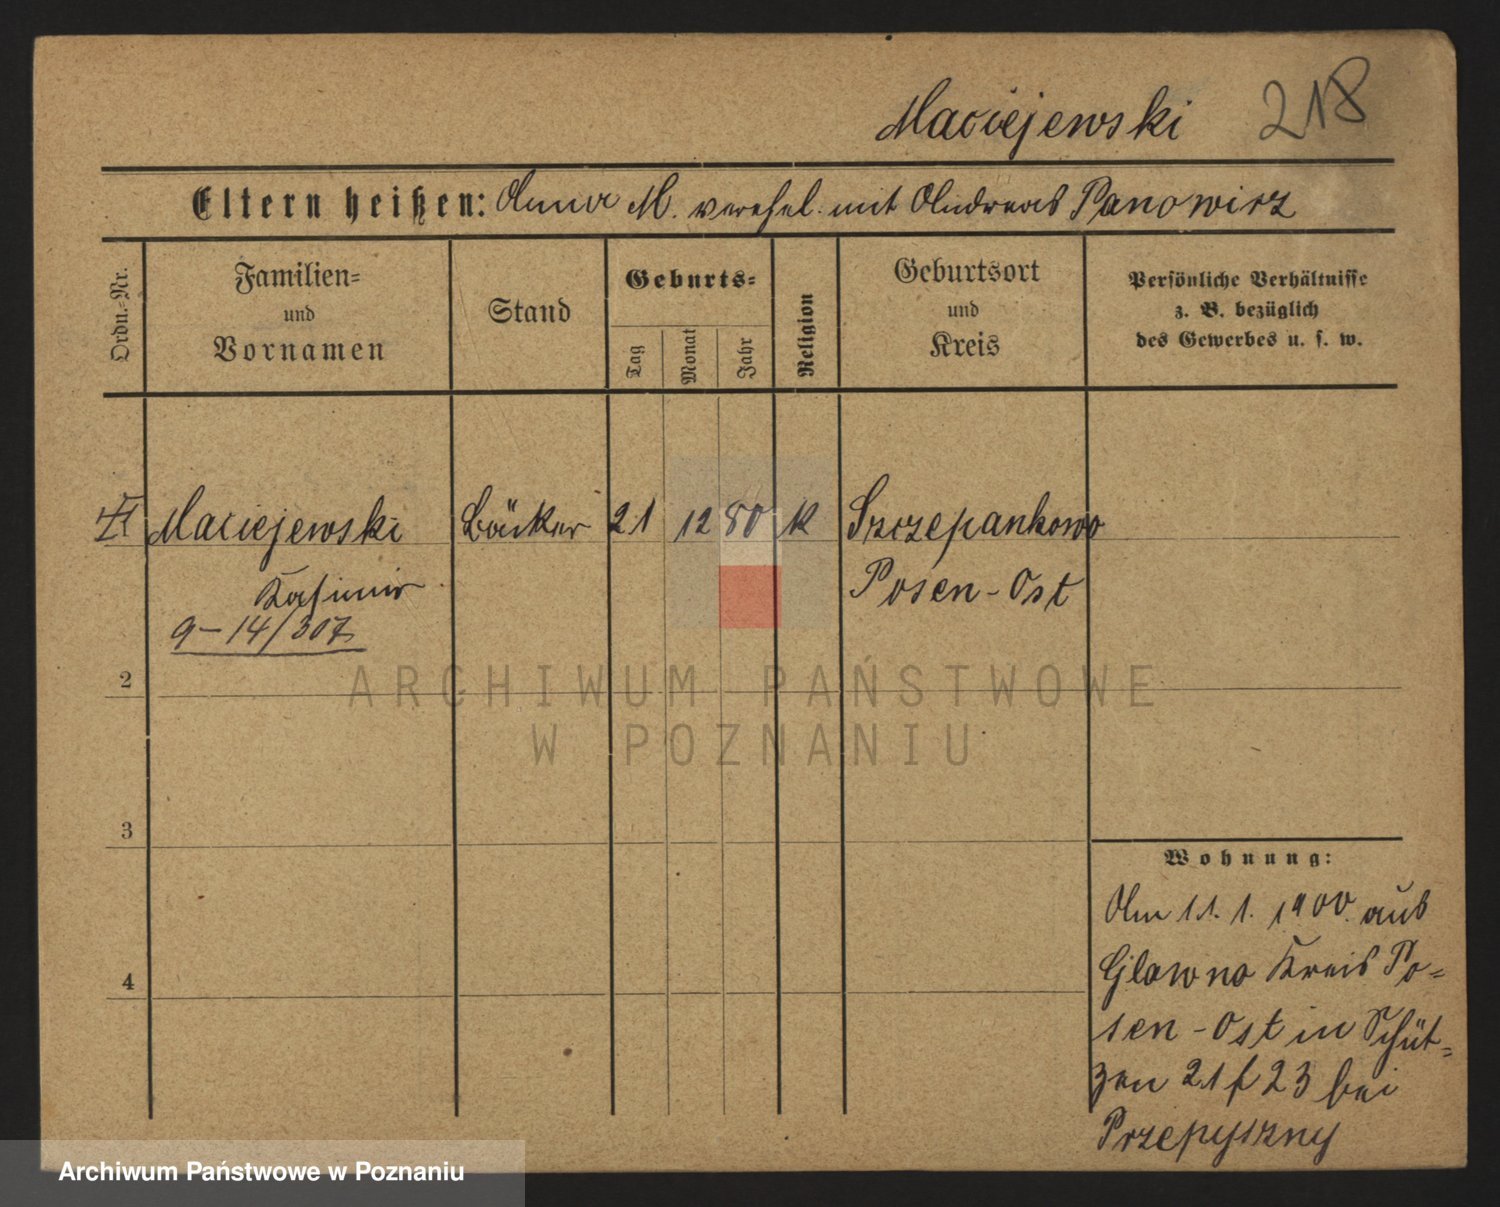 Maciejewski 218
Eltern heißen: Anna M. verehel. mit Andreas Panowicz
Ordn.-Nr.
Familien-
und
Vornamen
Stand
Geburts-
Tag
Monat
Jahr
Religion
Geburtsort
und
Kreis
Persönliche Verhältnisse
z. B. bezüglich
des Gewerbes u. s. w.
Maciejewski Bäcker 21 12 80 K Szczepankowo
Kasimir Posen-Ost
9-14/307
2
3
4
ARCHIWUM PAŃSTWOWE
W POZNANIU
Wohnung:
Am 11.1.1900. aus
Glowno Kreis Po=
sen-Ost in Schüt=
zen 21 f 23 bei
Przepyszny
Archiwum Państwowe w Poznaniu